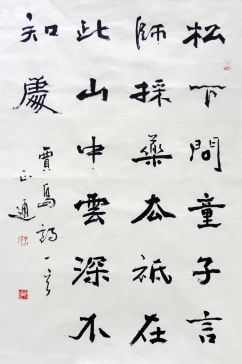 松下問童子言
師採藥去祗在
此山中雲深不
知處
賈島詩一首